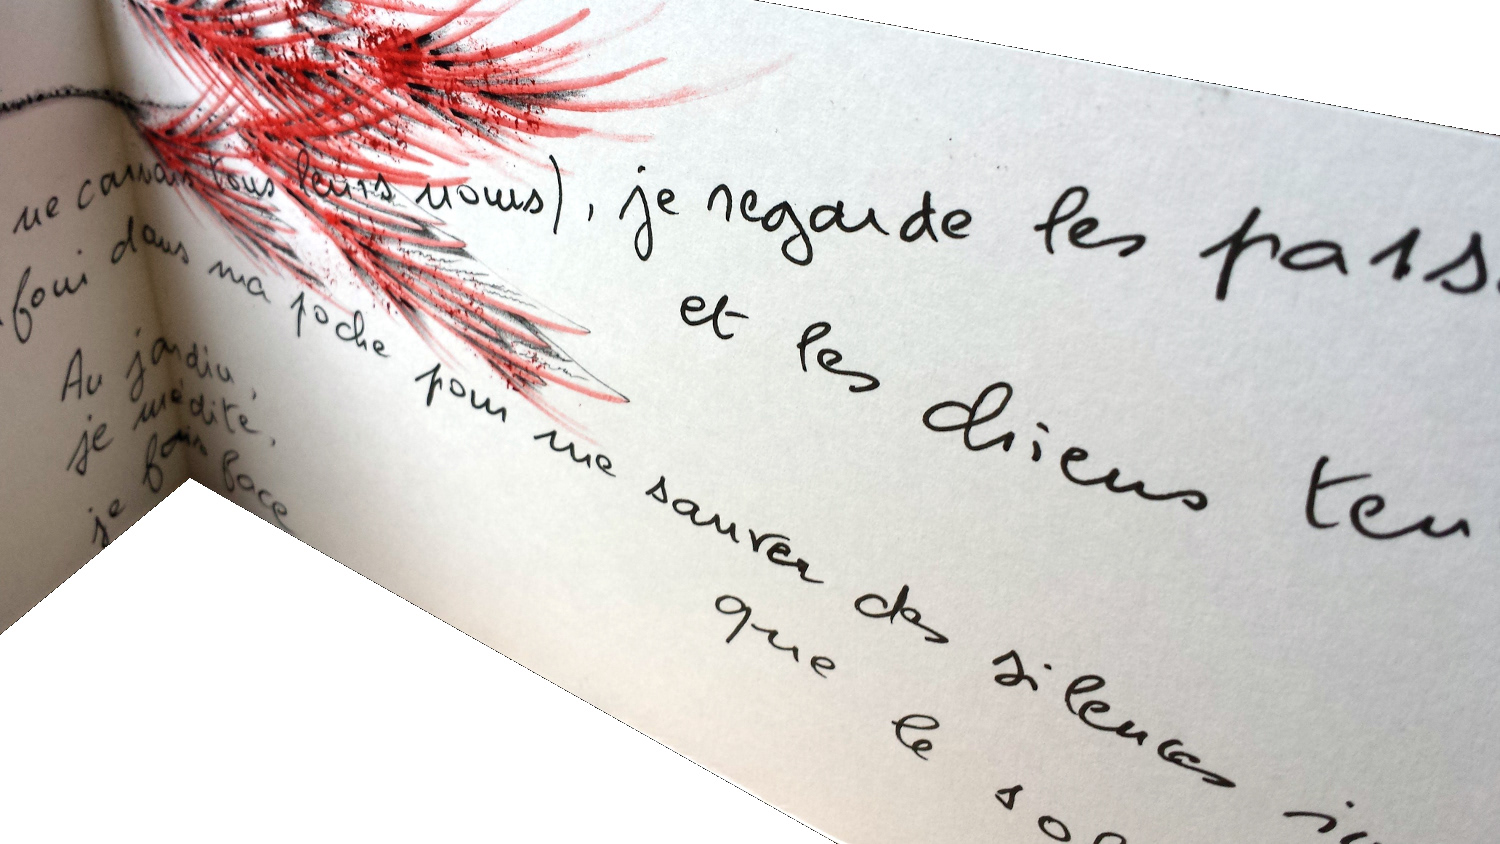 ne connais tous leurs noms), je regarde les pass
et les chiens ten
foui dans ma poche pour me sauver des silences
que le sol
Au jardin,
je médite,
je fais face